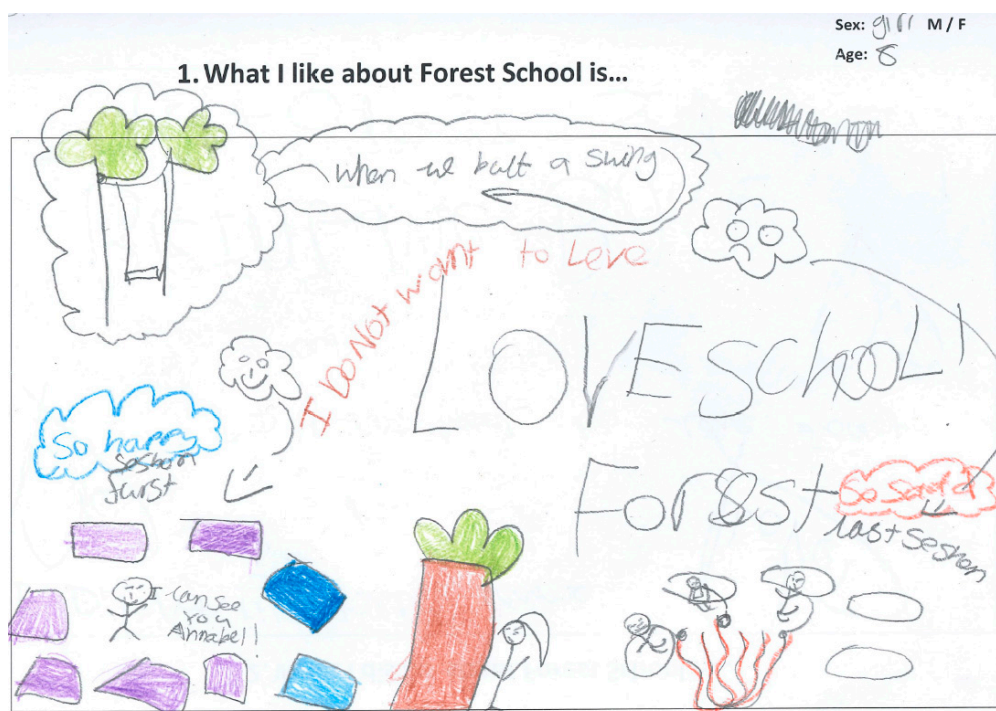 Sex: girl M / F
Age: 8
1. What I like about Forest School is...
when we built a swing
I Do Not want to Leve
LOVE SchooL!
Forest
So happy
seshon
furst
So sad
Last Seshon
I can see
you
Annabell!